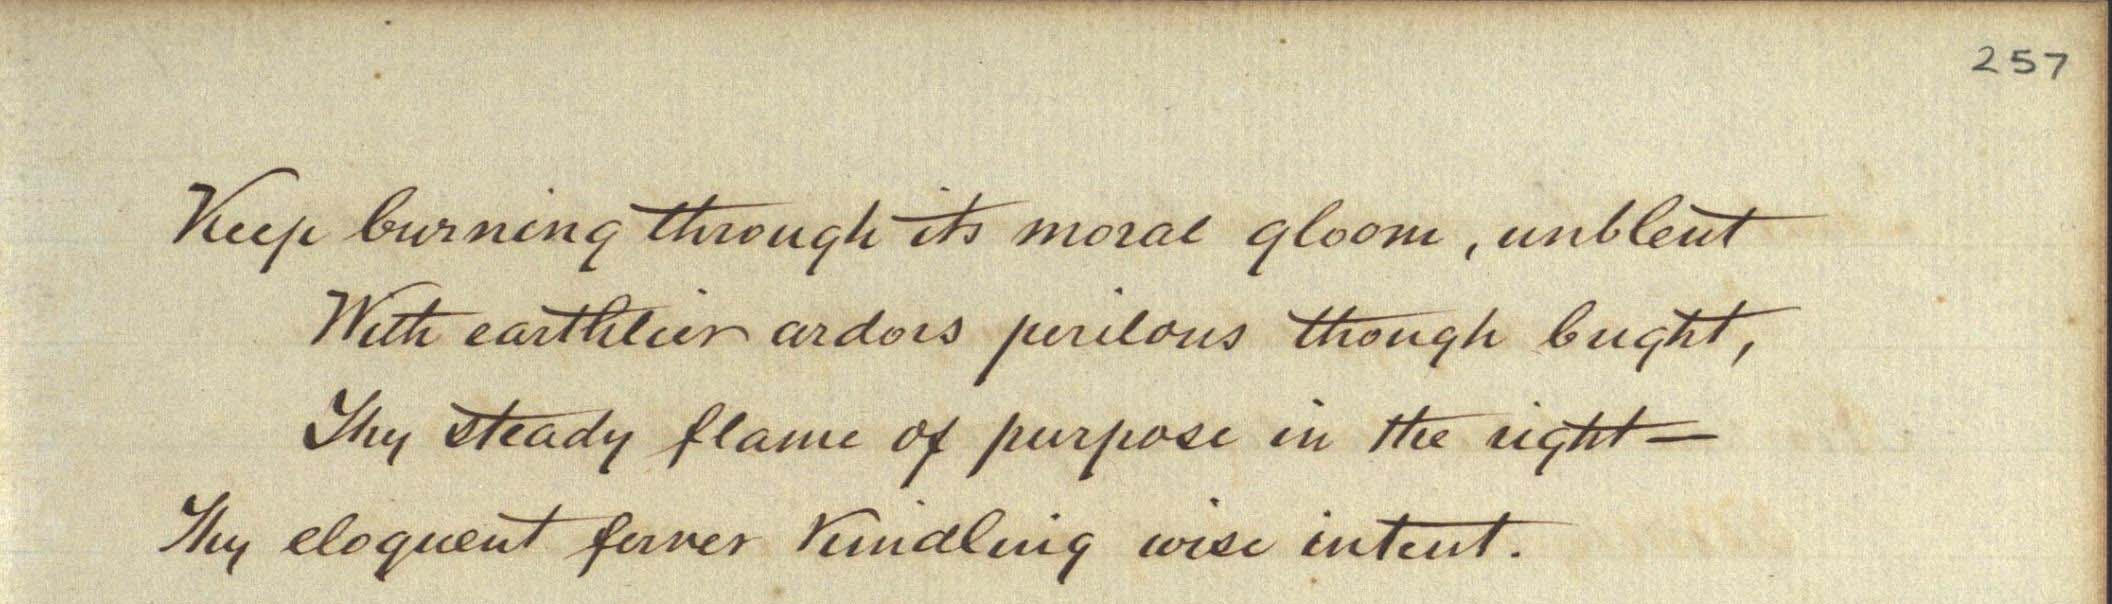 257
Keep burning through its moral gloom, unblent
With earthlier ardors perilous though bright,
Thy steady flame of purpose in the right—
Thy eloquent ferver kindling wise intent.